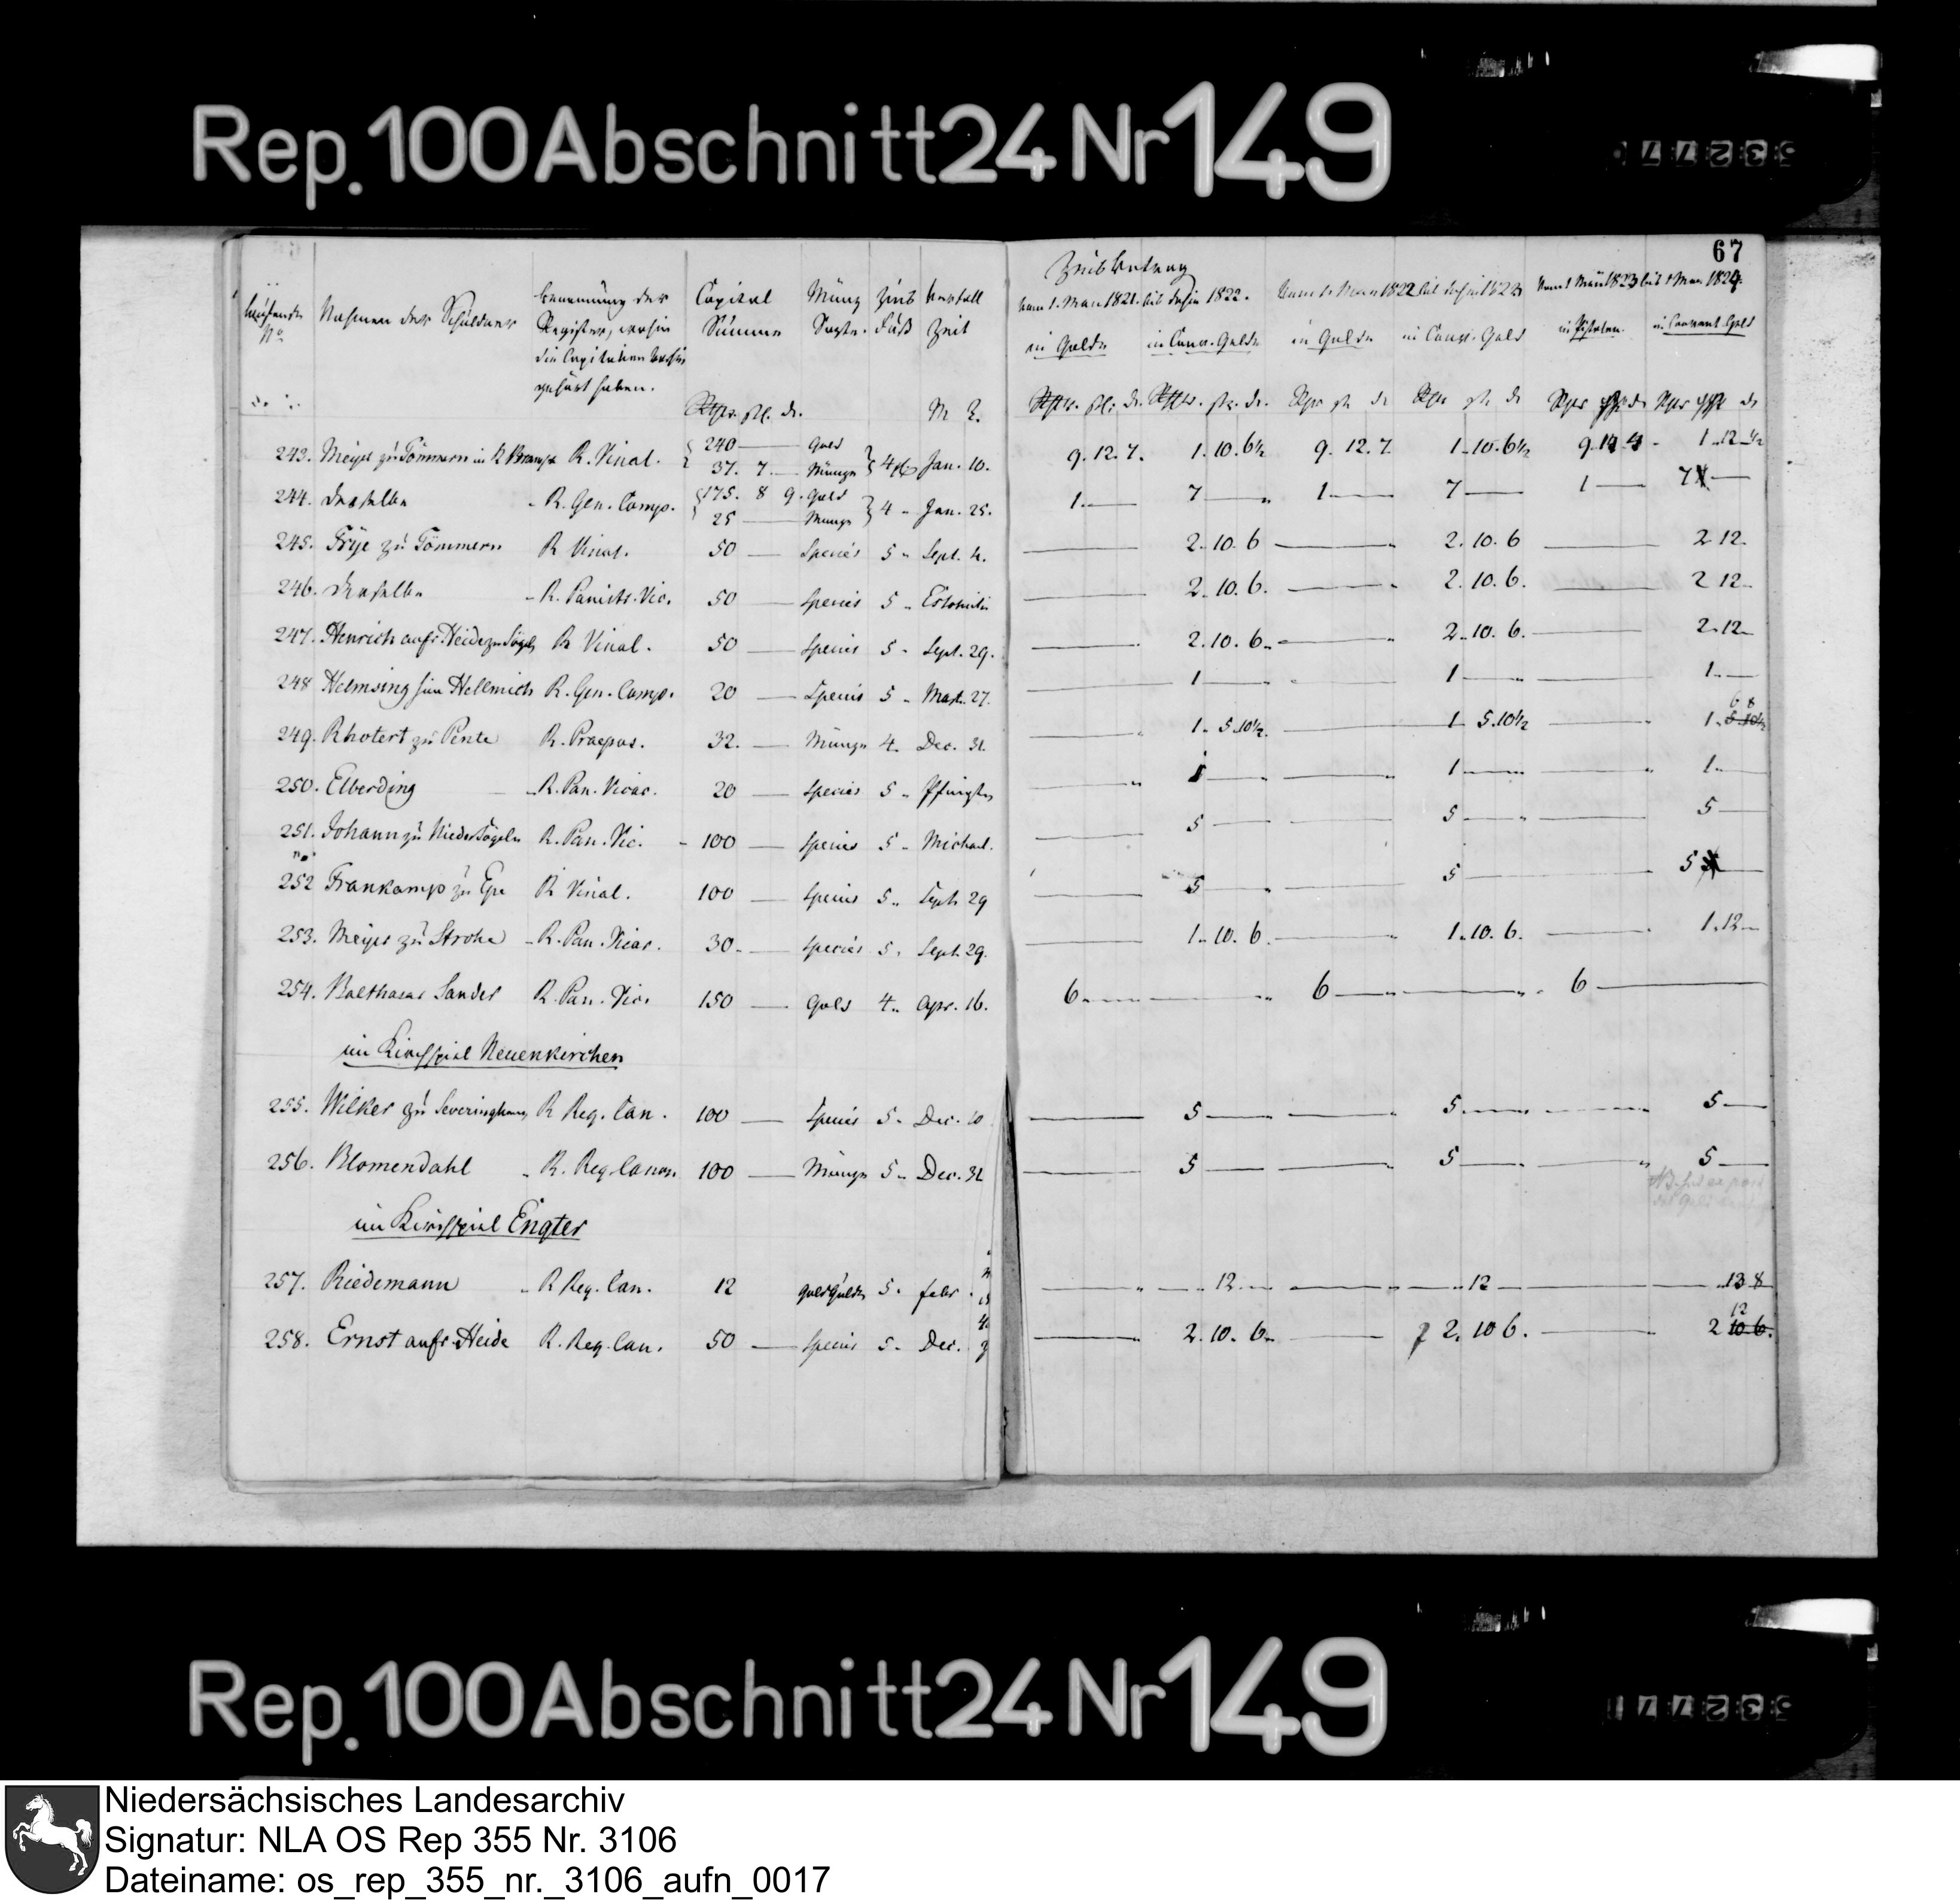 Rep. 100 Abschnitt 24 Nr 149
67
Laufende No Nahmen der Schuldner Benennung der Register, wohin die Capitalien bisher gehört haben. Capital Summe Münz Sorte. Zins Fuß Verfall Zeit
Zins Betrag
vom 1. May 1821. bis dahin 1822. vom 1. May 1822 bis dahin 1823 vom 1 May 1823 bis 1 May 1824.
in Golde in Conv. Gelde in Golde in Conv. Geld in Pistolen. in Courant Geld
Rthlr. ßl. d. M. T. Rthlr. ßl. d. Rthlr. ßl. d. Rthlr ßl d Rthlr ßl d Rthlr d Rthlr d
243. Meyer zu Sömmern in R. Vical. { 240 — Gold } 4 Jan. 10. 9. 12. 7. 1. 10. 6½ 9. 12. 7. 1. 10. 6½ 9. 14 4 - 1. 12 ½
37. 7 — Münze
244. derselbe - R. Gen. Camp. { 175. 8 9. Gold } 4 - Jan. 25. 1. — 7 — 1 — 7 — 1 — 7 —
25 — Münze
245. Frye zu Sömmern R Vical. 50 — Species 5 - Sept. 4. — 2. 10. 6 — 2. 10. 6 — 2 12.
246. derselbe - R. Panistr. Vic. 50 — Species 5 - Estomihi — 2. 10. 6. — 2. 10. 6. — 2 12-
247. Henrich aufr. Heide zu Sögeln R Vical. 50 — Species 5 - Sept. 29. — 2. 10. 6. — 2. 10. 6. — 2. 12-
248 Helmsing sive Hellmich R. Gen. Camp. 20 — Species 5 - Mart. 27. — 1 — 1 — 1. —
249. Rhotert zu Pente R. Praepos. 32. — Münze 4. Dec. 31. — 1. 5. 10½. — 1. 5. 10½ — 1. 5. 10½ 6 8
250. Elberding - R. Pan. Vicar. 20 — Species 5 - Pfingsten — 1 — 1 — 1. —
251. Johann zu Nieder Sögeln R. Pan. Vic. - 100 — Species 5 - Michael. — 5 — 5 — 5 —
252 Frankamp zu Epe R Vical. 100 — Species 5 - Sept. 29 — 5 — 5 — 5 —
253. Meyer zu Strohe - R. Pan. Vicar. 30. — Species 5. Sept. 29. — 1. 10. 6. — 1. 10. 6. — 1. 12 —
254. Balthasar Sander R. Pan. Vic. 150 — Gold 4. Apr. 16. 6. — 6 — 6 —
im Kirchspiel Neuenkirchen
255. Wilker zu Severinghausen R Reg. Can. 100 — Species 5. Dec. 10 — 5 — 5. — 5 —
256. Blomendahl - R. Reg. Canon. 100 — Münze 5 - Dec. 31 — 5 — 5 — 5 —
im Kirchspiel Engter
257. Riedemann - R Reg. Can. 12 Goldgulden 5. Febr. — 12 — — 12 — — 13 8
258. Ernst aufr. Heide R. Reg. Can. 50 — Species 5. Dec. — 2. 10. 6. — 2. 10 6. — 2 10 6. 12
Rep. 100 Abschnitt 24 Nr 149
Niedersächsisches Landesarchiv
Signatur: NLA OS Rep 355 Nr. 3106
Dateiname: os_rep_355_nr._3106_aufn_0017